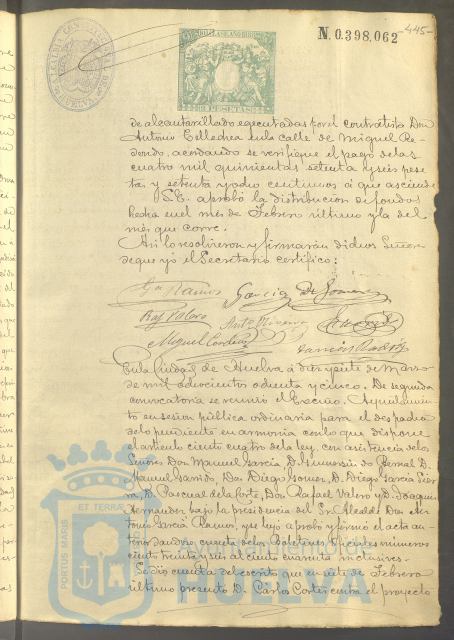 N.0.398,062
445
ALCALDIA CONSTITUCIONAL
HUELVA
de alcantarillado egecutadas por el contratista Don
Antonio Tellechea en la calle de Miguel Re-
dondo, acordando se verifique el pago de las
cuatro mil quinientas setenta y seis pese
tas y setenta y ocho centimos á que asciende
S.E. aprobó la distribucion de fondos
hecha en el mes de Febrero último y la del
mes que corre.
Asi lo resolvieron y firmarán dichos Señores
de que yó el Secretario certifico:
García Ramos
García
Raf Valero
Miguel Cordero
En la Ciudad de Huelva á diez y siete de Marzo
de mil ochocientos ochenta y cinco. De segunda
convocatoria se reunió el Excmo. Ayuntamien
to en sesion pública ordinaria para el despacho
de lo pendiente en armonia con lo que dispone
el articulo ciento cuatro de la ley, con asistencia de los
Señores Don Manuel García, D. Bernal D.
Manuel Garrido, Don Diego Gomez, D. Diego García
D. Pascual de la Corte, Don Rafael Valero y D. Joaquin
Hernandez bajo la presidencia del Sr. Alcalde Don An-
tonio García Ramos, se leyó aprobó y firmó el acta an-
terior dandose cuenta de los Boletines Oficiales números
ciento treinta y seis al ciento cuarenta inclusives.
Se dió cuenta del escrito que en siete de Febrero
último presentó D. Carlos Cortés contra el proyecto
PORTUS MARIS ET TERRÆ
Ayuntamiento de
HUELVA